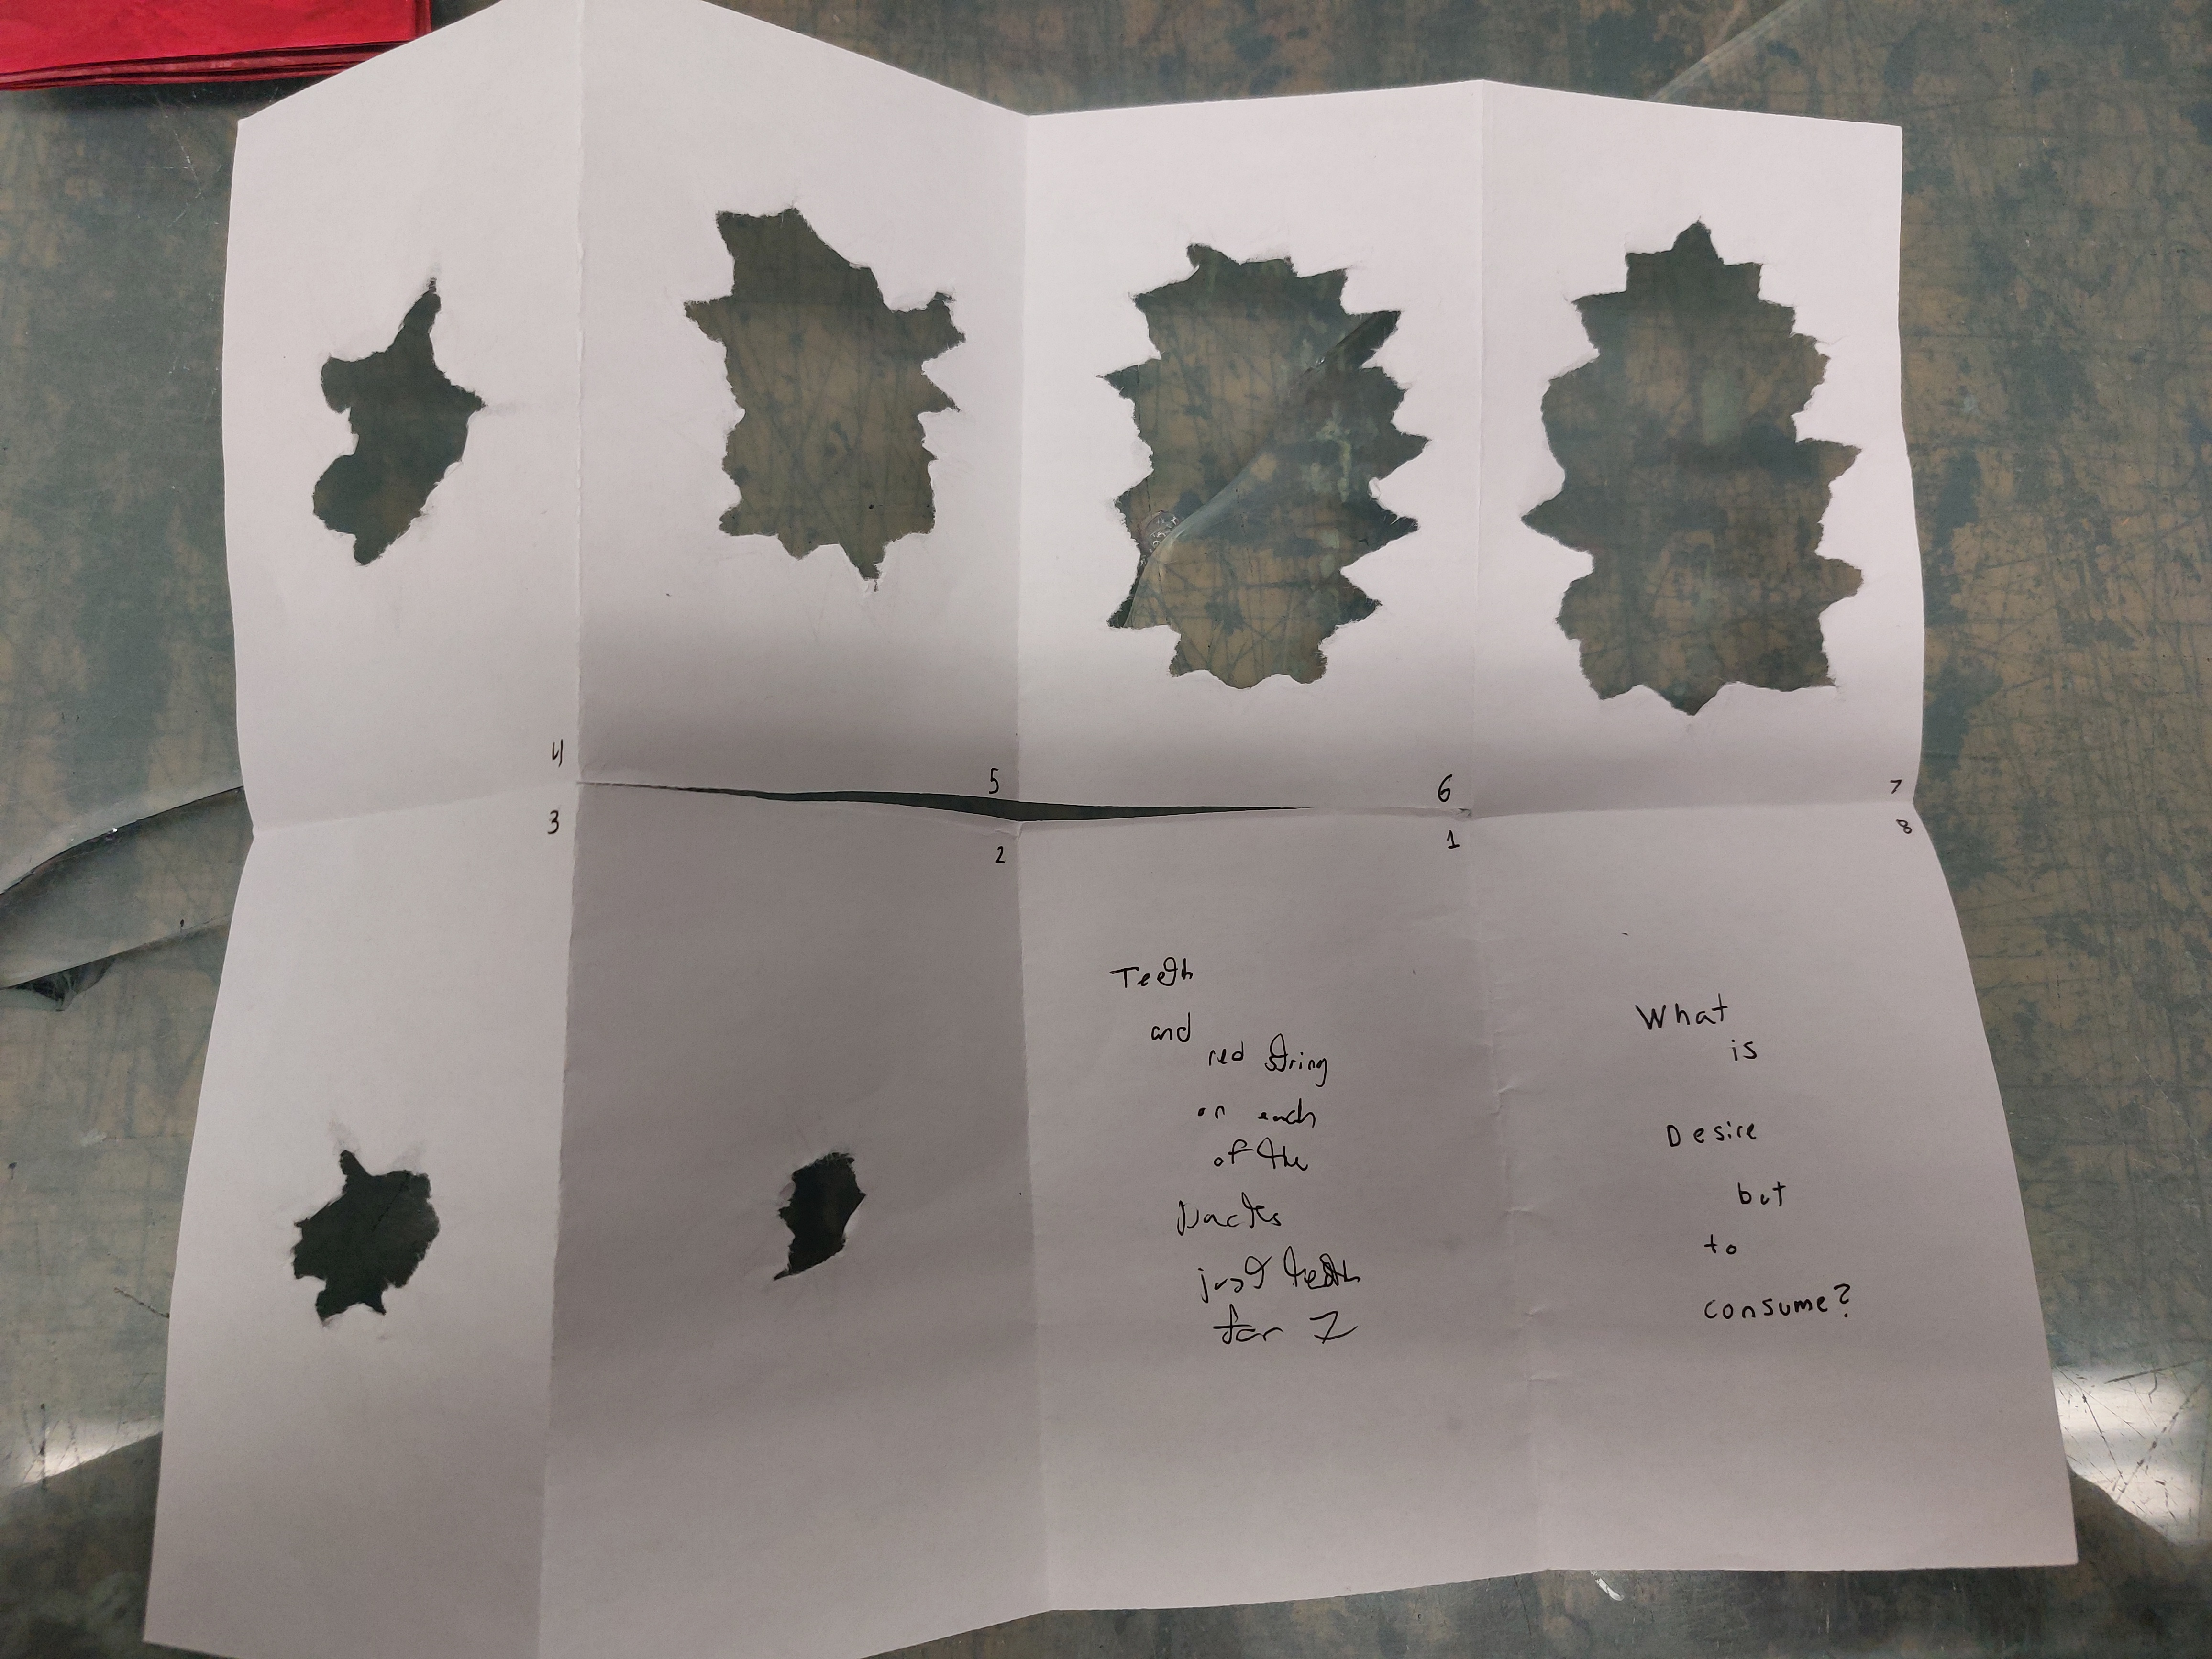 3
4
2
5
Teeth
and
red string
on each
of the
backs
just teeth
for 7
1
6
What
is
Desire
but
to
consume?
8
7